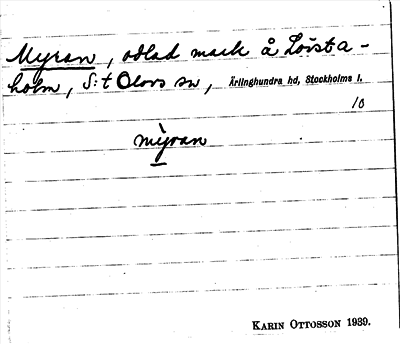 Myran, odlad mark å Lövsta-
holm, S:t Olovs sn, Ärlinghundra hd, Stockholms l.
10
mỳran
KARIN OTTOSSON 1939.